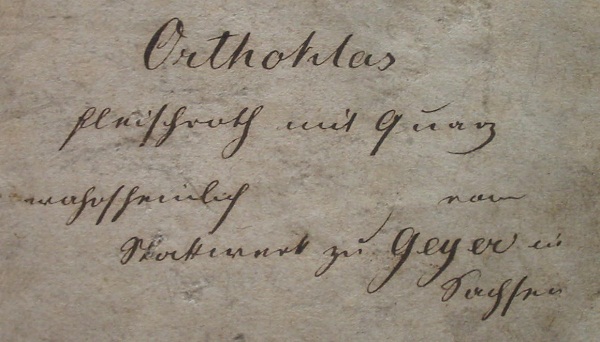 Orthoklas
fleischroth mit Quarz
wahrscheinlich vom
Stockwerk zu Geyer in
Sachsen